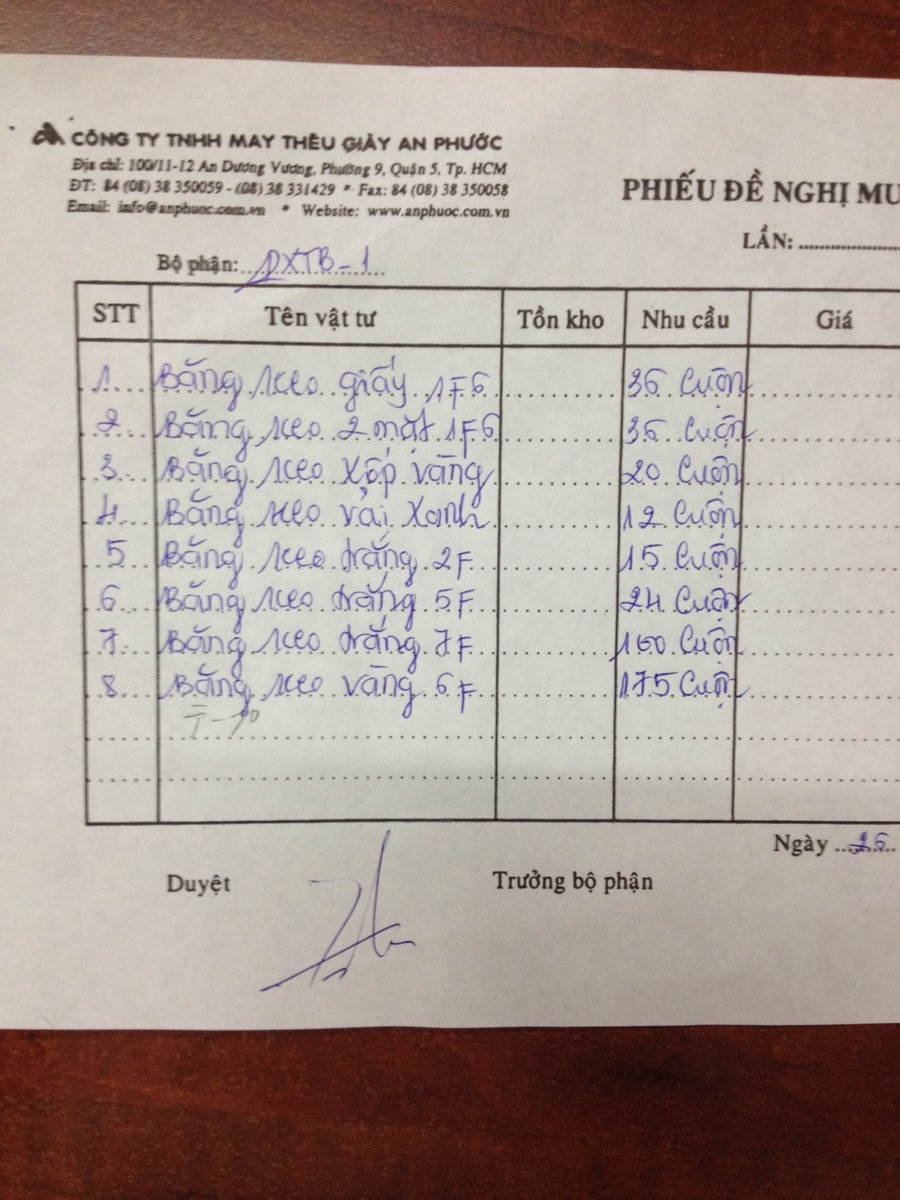 CÔNG TY TNHH MAY THÊU GIÀY AN PHƯỚC
Địa chỉ: 100/11-12 An Dương Vương, Phường 9, Quận 5, Tp. HCM
ĐT: 84 (08) 38 350059 - (08) 38 331429 * Fax: 84 (08) 38 350058
Email: info@anphuoc.com.vn * Website: www.anphuoc.com.vn
PHIẾU ĐỀ NGHỊ MU
LẦN: ....................
Bộ phận: PXTB-1
STT Tên vật tư Tồn kho Nhu cầu Giá
1 Băng keo giấy 1F6 36 Cuộn
2 Băng keo 2 mặt 1F6 36 Cuộn
3 Băng keo xốp vàng 20 Cuộn
4 Băng keo vải xanh 12 Cuộn
5 Băng keo trắng 2F 15 Cuộn
6 Băng keo trắng 5F 24 Cuộn
7 Băng keo trắng 7F 160 Cuộn
8 Băng keo vàng 6F 175 Cuộn
テープ
Ngày 26
Duyệt Trưởng bộ phận